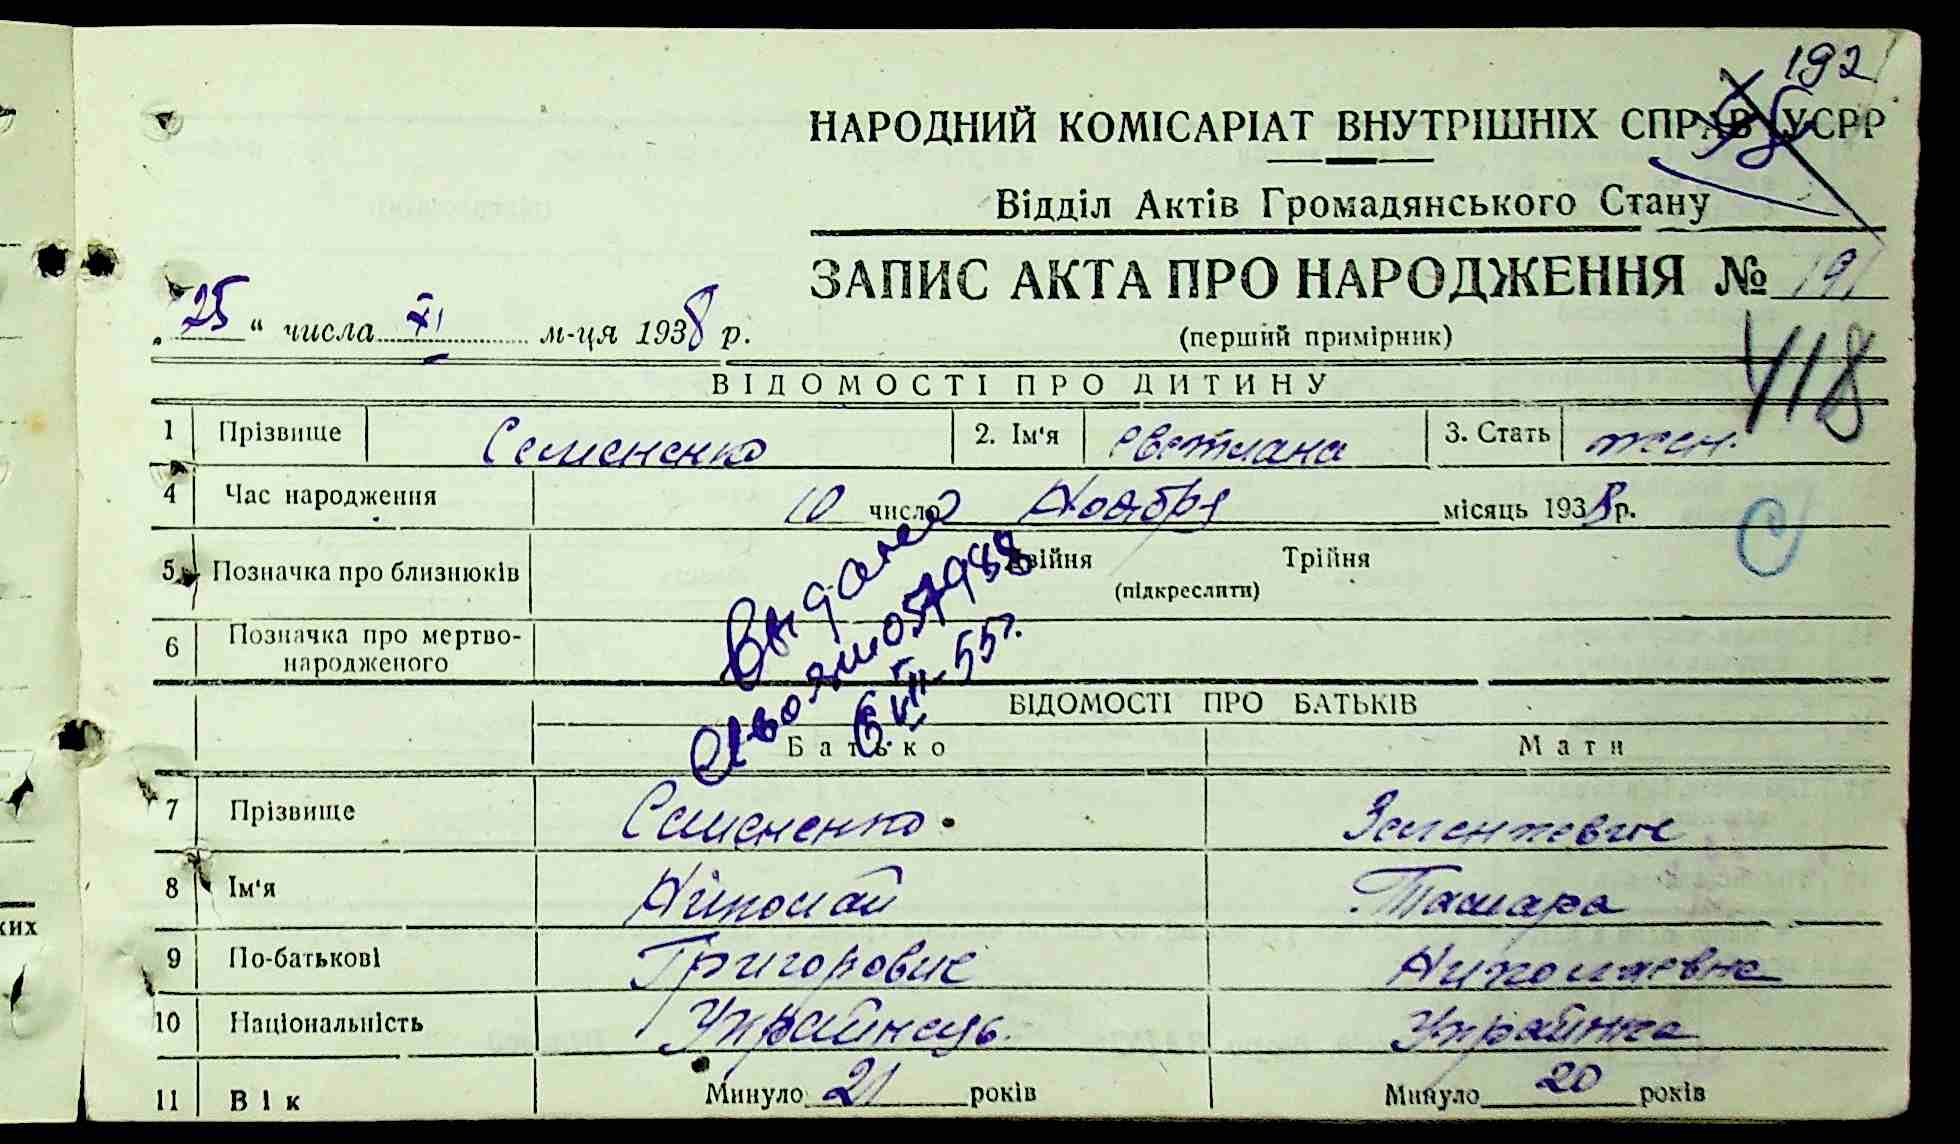 192
НАРОДНИЙ КОМІСАРІАТ ВНУТРІШНІХ СПРАВ УСРР
Відділ Актів Громадянського Стану
ЗАПИС АКТА ПРО НАРОДЖЕННЯ № 191
„25“ числа XI м-ця 1938 р.
(перший примірник)
418
ВІДОМОСТІ ПРО ДИТИНУ
1 Прізвище Семененко 2. Ім'я Светлана 3. Стать жен.
4 Час народження 10 число Ноября місяць 1938 р.
5 Позначка про близнюків Двійня Трійня
(підкреслити)
6 Позначка про мертво-
народженого
Выдано
057988
6 VII-55 г.
ВІДОМОСТІ ПРО БАТЬКІВ
Батько Мати
7 Прізвище Семененко
8 Ім'я Ніколай Тамара
9 По-батькові Григорович Николаевна
10 Національність Українець Українка
11 Вік Минуло 21 років Минуло 20 років
ких